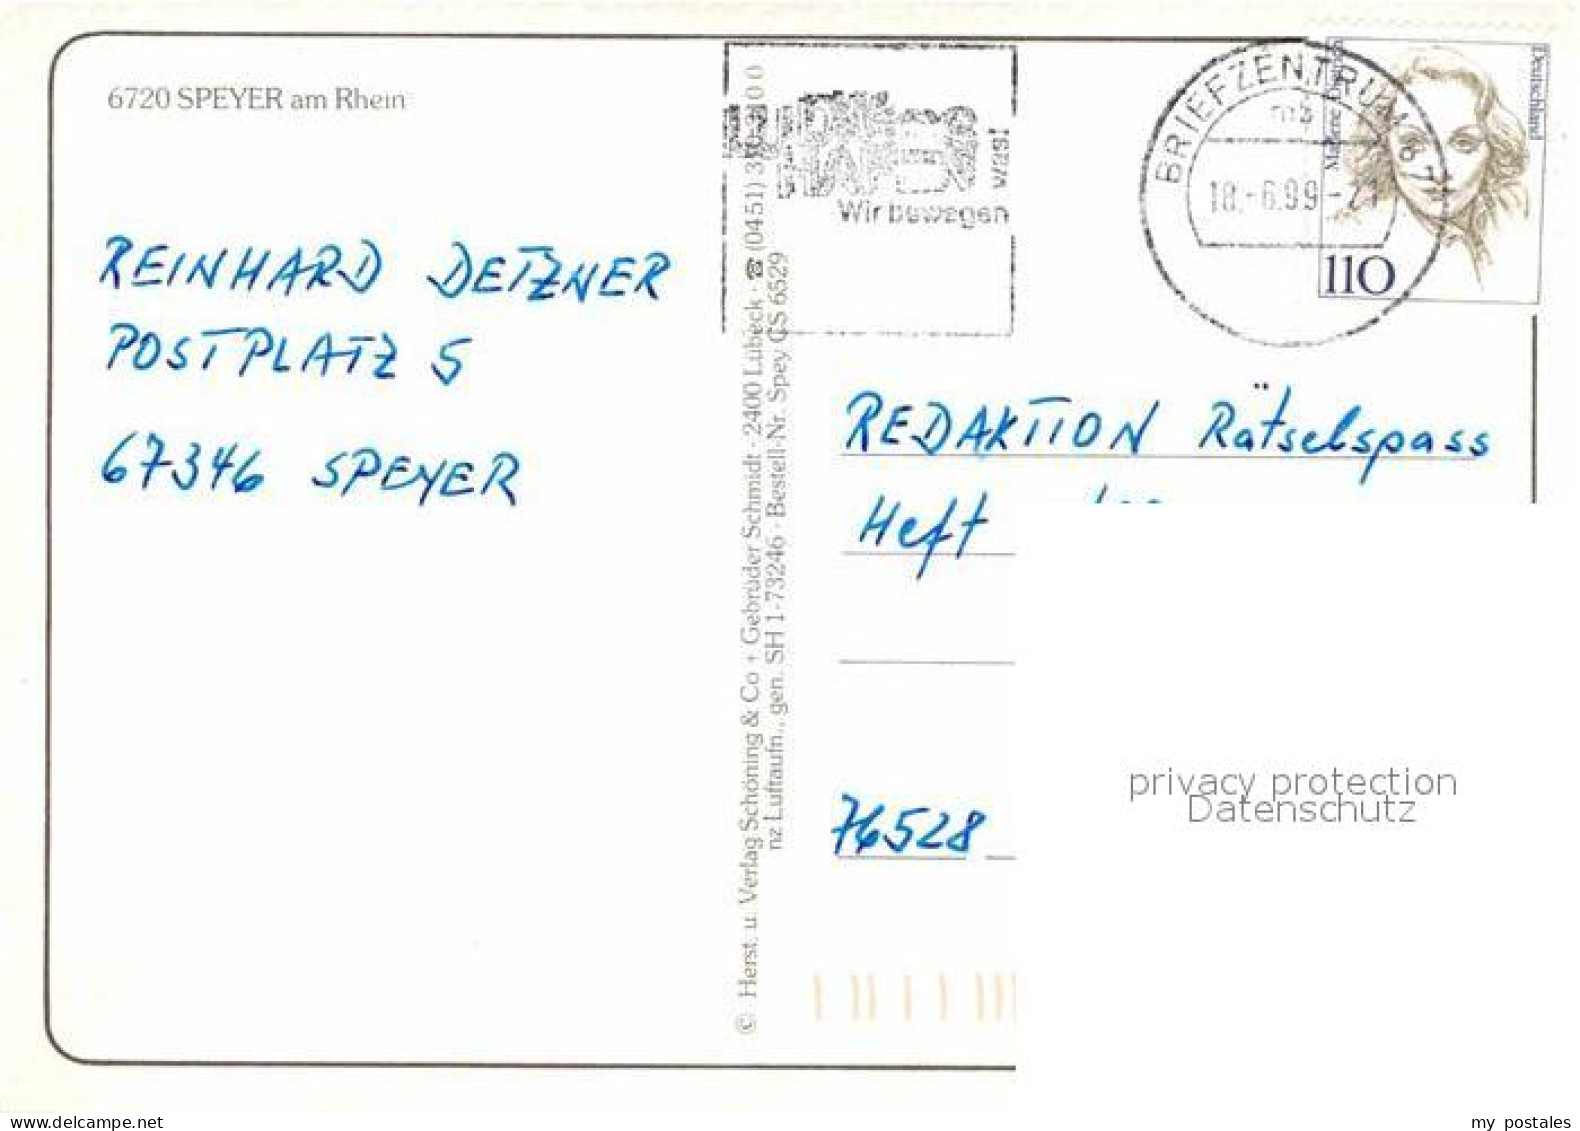 6720 SPEYER am Rhein
REINHARD DETZNER
POSTPLATZ 5
67346 SPEYER
© Herst. u. Verlag Schöning & Co + Gebrüder Schmidt · 2400 Lübeck · ☎ (0451)
nz Luftaufn., gen. SH 1-73246 · Bestell-Nr. Spey CS 6529
Wir bewegen
was!
BRIEFZENTRUM 67
18.-6.99-21
Deutschland
Marlene Dietrich
110
REDAKTION Rätselspass
Heft
76528
privacy protection
Datenschutz
www.delcampe.net
my postales